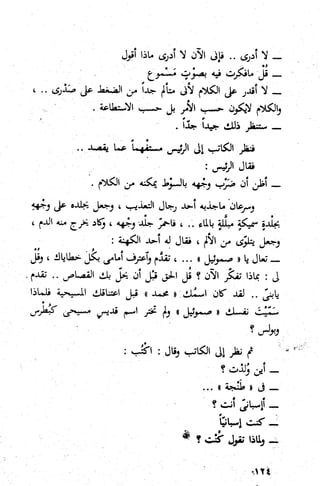 — لا أدرى .. فإلى الآن لا أدرى ماذا أقول
— قُل مافكرت فيه بصوت مسموع
— لا أقدر على الكلام لأنى متألم جداً من الضغط على صدْرى .. ،
والكلام لايكون حسب الأمر بل حسب الاستطاعة .
— ستنظر ذلك جيداً جدّاً .
فنظر الكاتب إلى الرئيس مستفهماً عما يقصد ..
فقال الرئيس :
— أظن أن ضرْب وجهه بالسوط يمكنه من الكلام .
وسرعان ماجذبه أحد رجال التعذيب ، وجعل يجلده على وجهه
بجلدة سميكة مبللة بالماء .. ، فاحمرّ جلد وجهه ، وكاد يخرج منه الدم ،
وجعل يتلوّى من الألم ، فقال له أحد الكهنة :
— تعال يا « صموئيل » ... ، تقدّم واعترف أمامى بكل خطاياك ، وقُل
لى : بماذا تفكر الآن ؟ قُل الحق قبْل أن يحلّ بك القصاص .. تقدم .
يابنىّ .. لقد كان اسمك « محمد » قبل اعتناقك المسيحية فلماذا
سمّيْت نفسك « صموئيل » ولم تختر اسم قديس مسيحى كبُطرس
وبولس ؟
ثم نظر إلى الكاتب وقال : اكتُب :
— أين وُلدْت ؟
— فى « طنجة » ...
— أإسبانىّ أنت ؟
— كنت إسبانيّاً
— ولماذا تقول كُنْت ؟ *
١٢٤